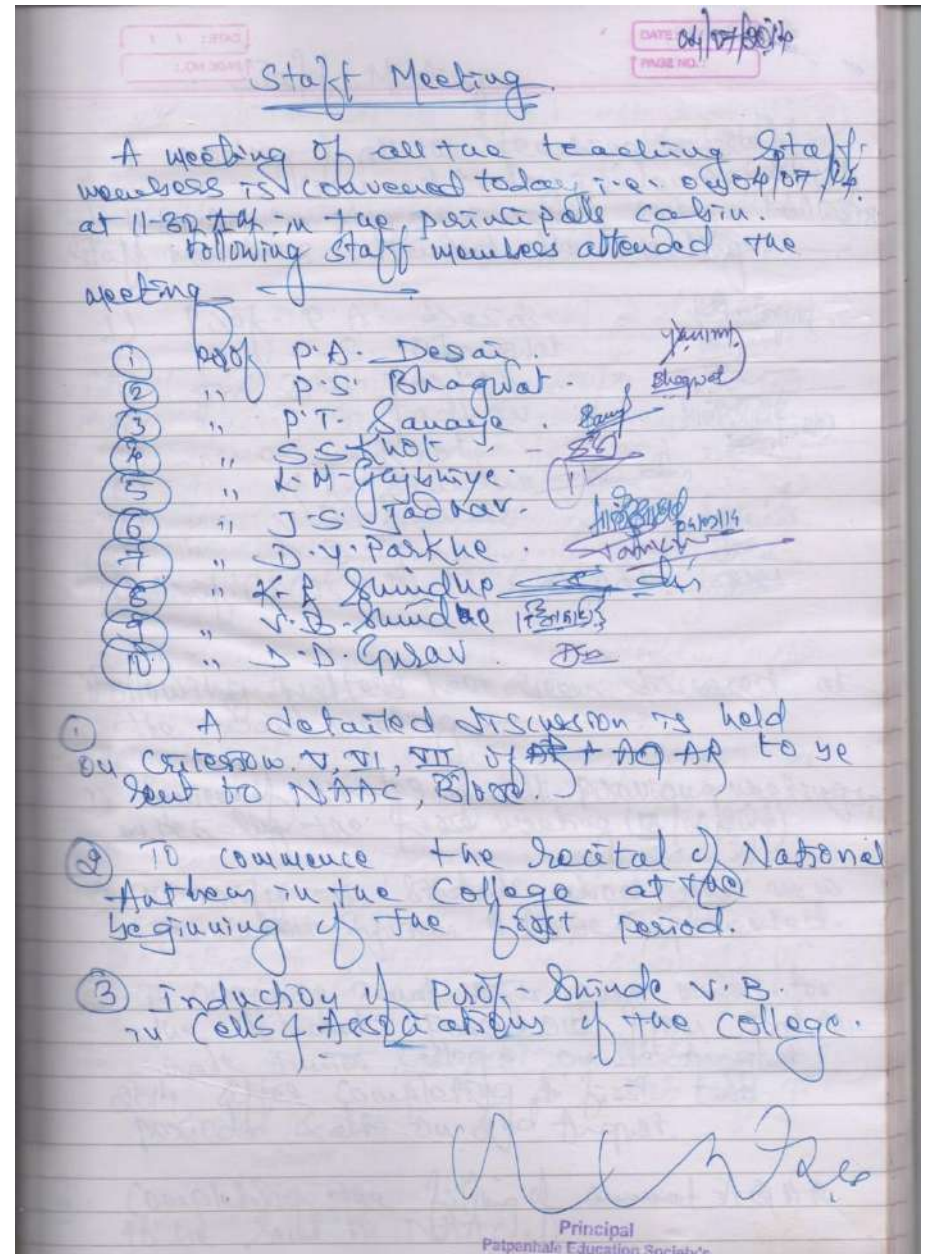 DATE: 04/07/2014
PAGE NO.:
Staff Meeting
A meeting of all the teaching Staff
members is convened today i.e. on 04/07/14
at 11-30 AM in the principals cabin.
Following staff members attended the
meeting
① Prof P.A. Desai.
② ,, P.S. Bhagwat. Bhagwat
③ ,, P.T. Sanaye.
4 ,, S.S Khot
5 ,, L.M. Gajbhiye.
6 ,, J.S. Jadhav. 04/07/14
7 ,, D.Y. Parkhe.
8 ,, K.R Shindhe
9 ,, V.B. Shindhe
10 ,, D.D. Gurav.
① A detailed discussion is held
on Criterion V, VI, VII of AQAR to be
sent to NAAC, B'lore.
② To commence the recital of National
Anthem in the College at the
beginning of the first period.
③ Induction of Prof. Shinde V.B.
in Cells & Associations of the college.
Principal
Patpanhale Education Society's